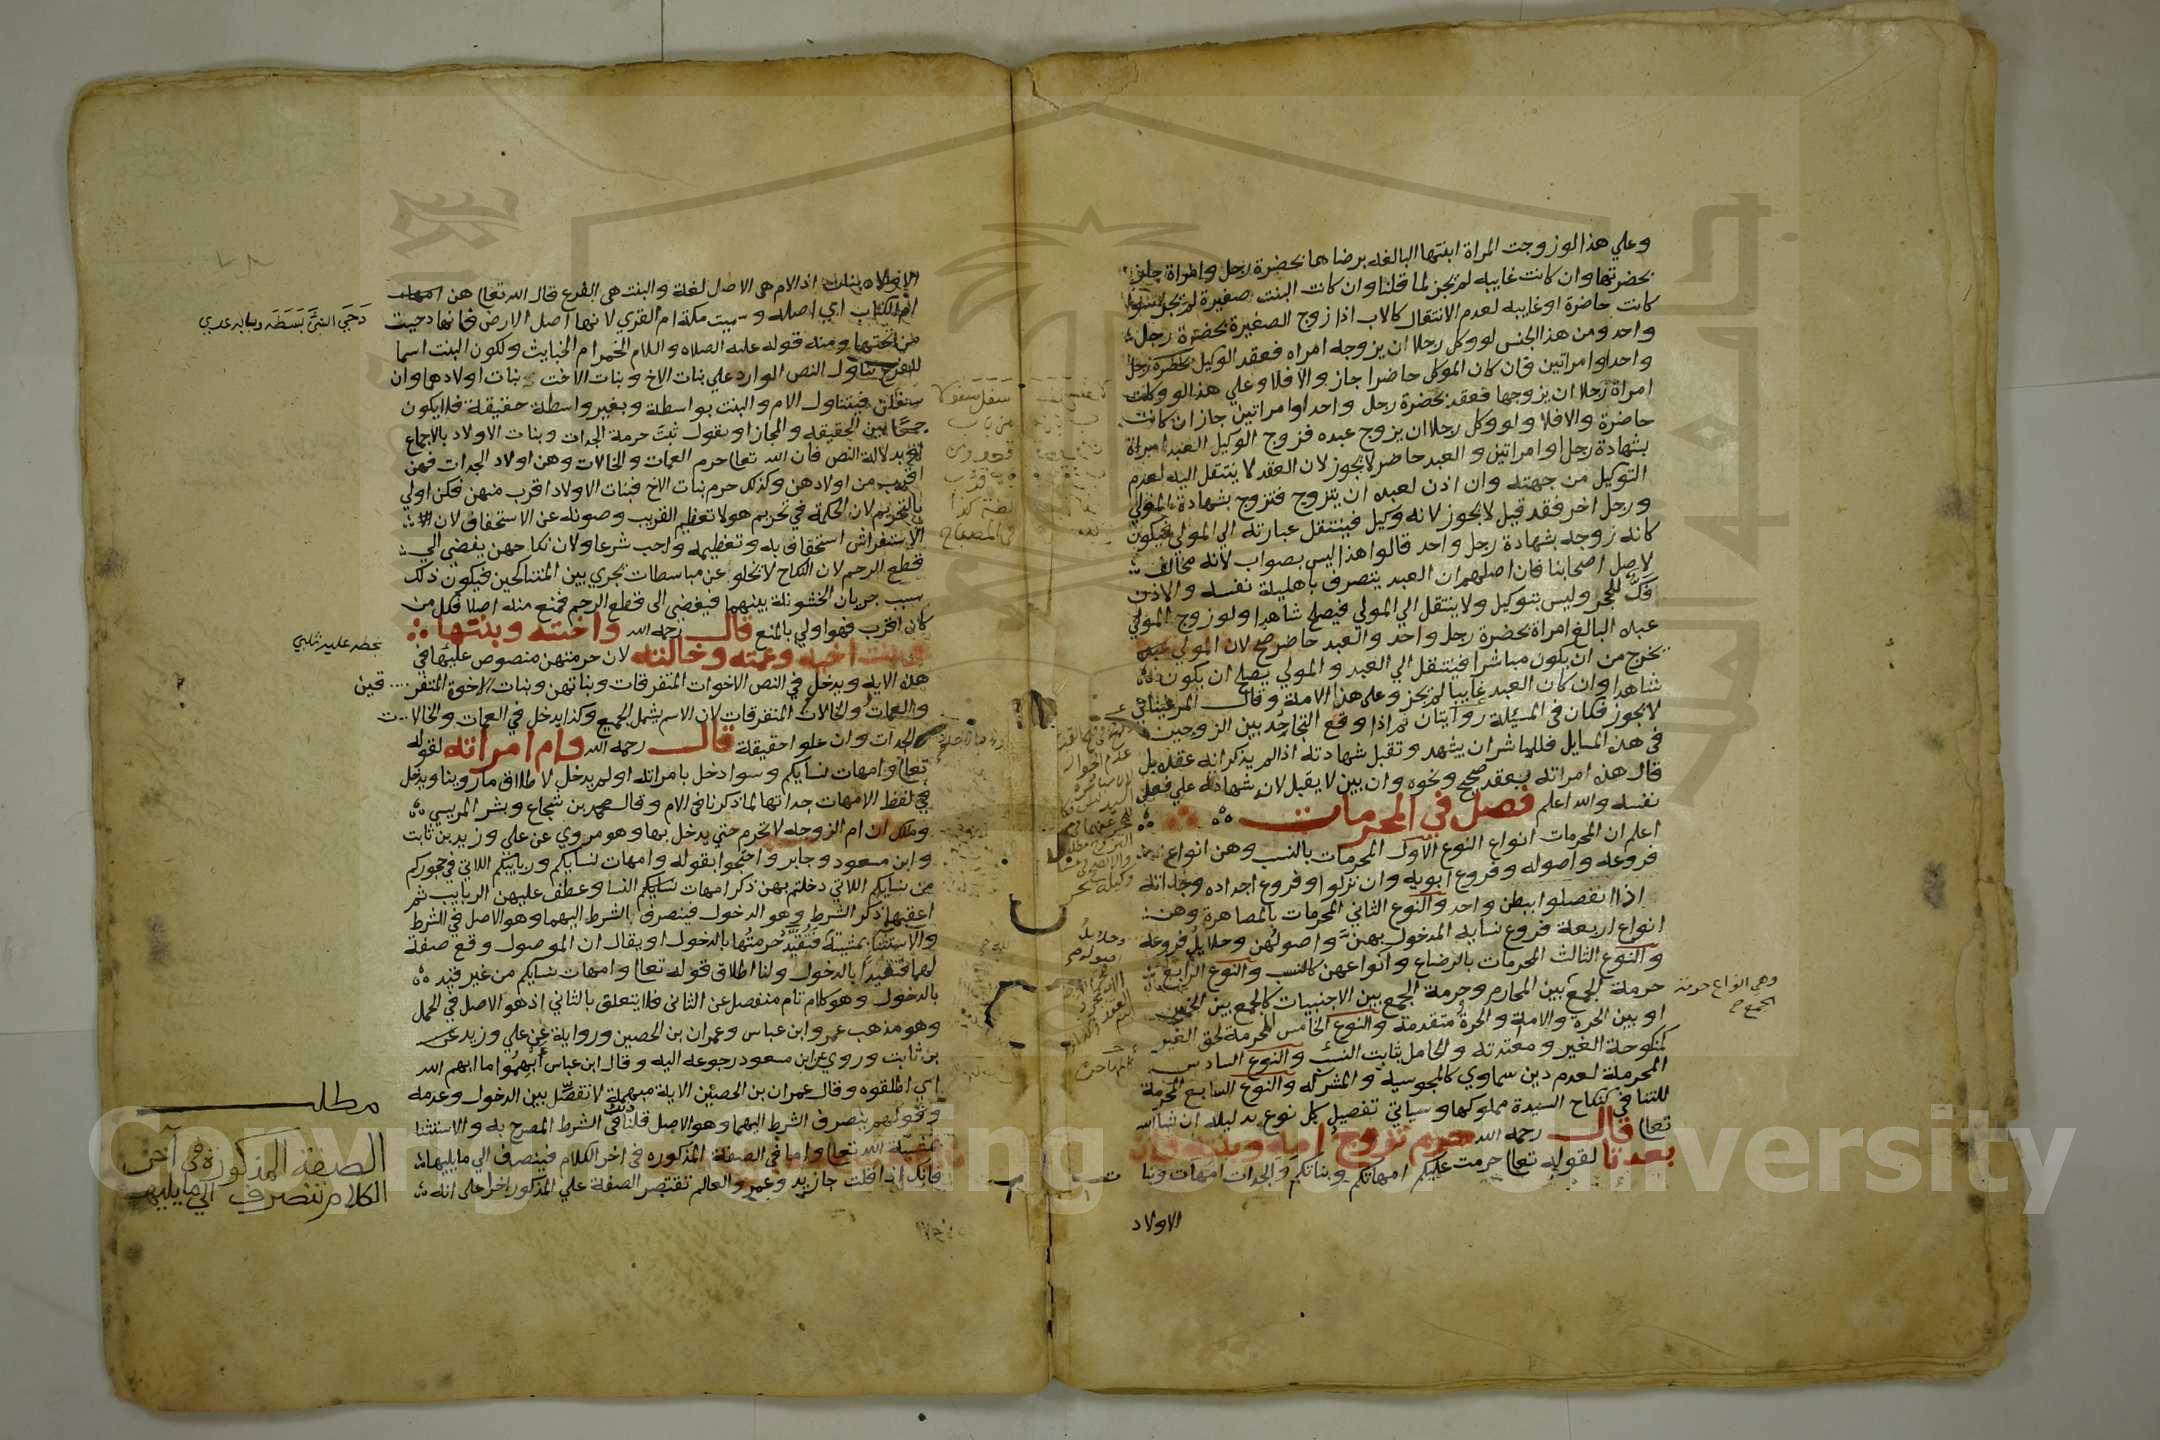 وعلي هذا لو زوجت المراة ابنتها البالغه برضاها بحضرة رجل وامراة جاز
بحضرتها وان كانت غايبه لم يجز لما قلنا وان كانت البنت صغيرة لم يجز سوا
كانت حاضرة او غايبه لعدم الانتقال كالاب اذا زوج الصغيرة بحضرة رجل
واحد ومن هذا الجنس لو وكل رجلا ان يزوجه امراه فعقد الوكيل بحضرة رجل
واحد او امراتين فان كان الموكل حاضرا جاز والا فلا وعلي هذا لو وكلت
امراة رجلا ان يزوجها فعقد بحضرة رجل واحد او امراتين جاز ان كانت
حاضرة والا فلا ولو وكل رجلا ان يزوج عبده فزوج الوكيل العبد امراة
بشهادة رجل او امراتين والعبد حاضر لا يجوز لان العقد لا ينتقل اليه لعدم
التوكيل من جهته وان اذن لعبده ان يتزوج فتزوج بشهادة المولي
ورجل اخر فقد قيل لا يجوز لانه وكيل فينتقل عبارته الي المولي فيكون
كانه زوجه بشهادة رجل واحد قالوا هذا ليس بصواب لانه مخالف
لاصل اصحابنا فان اصلهم ان العبد يتصرف باهلية نفسه والاذن
فك للحجر وليس بتوكيل ولا ينتقل الي المولي فيصلح شاهدا ولو زوج المولي
عبده البالغ امراة بحضرة رجل واحد والعبد حاضر صح لان المولي عبده
يخرج من ان يكون مباشرا فينتقل الي العبد والمولي يصلح ان يكون
شاهدا وان كان العبد غايبا لم يجز وعلي هذا الامة وقال المرغيناني
لا يجوز فكان في المسئلة روايتان ثم اذا وقع التجاحد بين الزوجين
في هذه المسايل فللمباشر ان يشهد وتقبل شهادته اذا لم يذكر انه عقده بل
قال هذه امراته بعقد صحيح ونحوه وان بين لا يقبل لان شهادته علي فعل
نفسه والله اعلم فصل في المحرمات
اعلم ان المحرمات انواع النوع الاول المحرمات بالنسب وهن انواع
فروعه واصوله وفروع ابويه وان نزلوا وفروع اجداده وجداته
اذا انفصلوا ببطن واحد والنوع الثاني المحرمات بالمصاهرة وهن
انواع اربعة فروع نسايه المدخول بهن واصولهن وحلايل فروعه
والنوع الثالث المحرمات بالرضاع وانواعهن كالنسب والنوع الرابع
حرمة الجمع بين المحارم وحرمة الجمع بين الاجنبيات كالجمع بين الخمس
او بين الحره والامة والحرة متقدمة والنوع الخامس المحرمة لحق الغير
كمنكوحة الغير ومعتدته والحامل بثابت النسب والنوع السادس
المحرمة لعدم دين سماوي كالمجوسية والمشركه والنوع السابع المحرمة
للتنافي كنكاح السيدة مملوكها وسياتي تفصيل كل نوع بدليله ان شا الله
تعالي قال رحمه الله حرم تزوج امه وبنته وان
بعدتا لقوله تعالي حرمت عليكم امهاتكم وبناتكم والجدات امهات وبنات
الاولاد
وهي انواع حرمة
الجمع
الاولاد بنات اذ الام هي الاصل لغة والبنت هي الفرع قال الله تعالي هن امهات
ام الكتاب اي اصله وسميت مكة ام القري لانها اصل الارض فانها دحيت
من تحتها ومنه قوله عليه الصلاه والسلام الخمر ام الخبايث ولكون البنت اسما
للفرع يتناول النص الوارد علي بنات الاخ وبنات الاخت وبنات اولادها وان
سفلن فيتناول الام والبنت بواسطة وبغير واسطة حقيقة فلا يكون
جمعا بين الحقيقه والمجاز او يقول ثبت حرمة الجدات وبنات الاولاد بالاجماع
او بدلالة النص فان الله تعالي حرم العمات والخالات وهن اولاد الجدات فهن
اقرب من اولادهن وكذلك حرم بنات الاخ فبنات الاولاد اقرب منهن فكن اولي
بالتحريم لان الحكمة في تحريم هولا تعظيم القريب وصونه عن الاستخفاف لان
الاستفراش استخفاف به وتعظيمه واجب شرعا ولان نكاحهن يفضي الي
قطع الرحم لان النكاح لا يخلو عن مباسطات تجري بين المتناكحين فيكون ذلك
سبب جريان الخشونة بينهما فيفضي الي قطع الرحم فمنع منه اصلا فكل من
كان اقرب فهو اولي بالمنع قال رحمه الله واخته وبنتها
وبنت اخيه وعمته وخالته لان حرمتهن منصوص عليها في
هذه الايه ويدخل في النص الاخوات المتفرقات وبناتهن وبنات الاخوة المتفرقين
والعمات والخالات المتفرقات لان الاسم يشمل الجميع وكذا يدخل في العمات والخالات
الجدات وان علوا حقيقة قال رحمه الله وام امراته لقوله
تعالي وامهات نسايكم وسوا دخل بامراته او لم يدخل لاطلاق ما روينا ويدخل
في لفظ الامهات جداتها لما ذكرنا في الام وقال محمد بن شجاع وبشر المريسي
ومالك ان ام الزوجه لا تحرم حتي يدخل بها وهو مروي عن علي وزيد بن ثابت
وابن مسعود وجابر واحتجوا بقوله وامهات نسايكم وربايبكم اللاتي في حجوركم
من نسايكم اللاتي دخلتم بهن ذكر امهات نسايكم النسا وعطف عليهن الربايب ثم
اعقبها ذكر الشرط وهو الدخول فينصرف الشرط اليهما وهو الاصل في الشرط
والاستثنا بمشية فتقيد حرمتها بالدخول او يقال ان الموصول وقع صفة
لهما فتقيدا بالدخول ولنا اطلاق قوله تعالي وامهات نسايكم من غير قيد
بالدخول وهو كلام تام منفصل عن الثاني فلا يتعلق بالثاني اذ هو الاصل في الجمل
وهو مذهب عمر وابن عباس وعمران بن الحصين ورواية عن علي وزيد
بن ثابت وروي عن ابن مسعود رجوعه اليه وقال ابن عباس ابهموا ما ابهم الله
اي اطلقوه وقال عمران بن الحصين الاية مبهمة لا تفصل بين الدخول وعدمه
وقولهم ينصرف الشرط اليهما وهو الاصل قلنا ذلك في الشرط المصرح به والاستثنا
بمشية الله تعالي واما في الصفة المذكوره في اخر الكلام فينصرف الي ما يليها
فانك اذا قلت جا زيد وعمرو العالم تقتصر الصفة علي المذكور اخرا علي انه
دحي الشي بسطه وبابه عدي
بخطه
مطلب
الصفة المذكورة في آخر
الكلام تنصرف الي ما يليها
Copyright © King Saud University